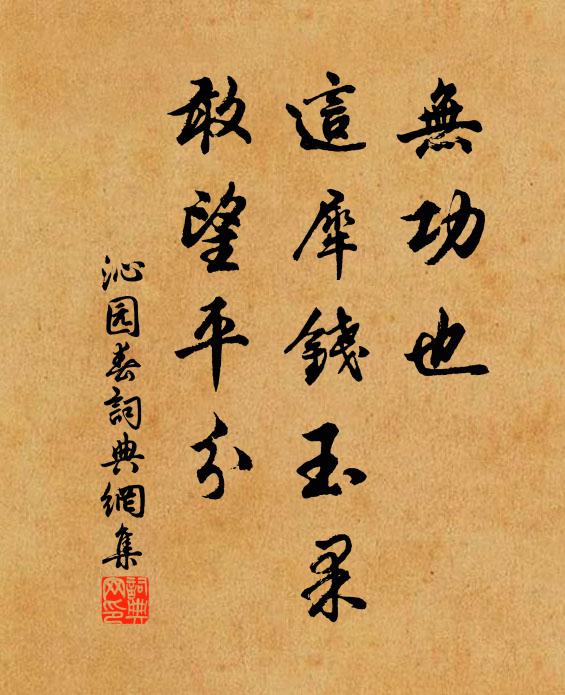 無功也
這犀錢玉果
敢望平分
沁园春詞典網集
詞典网印